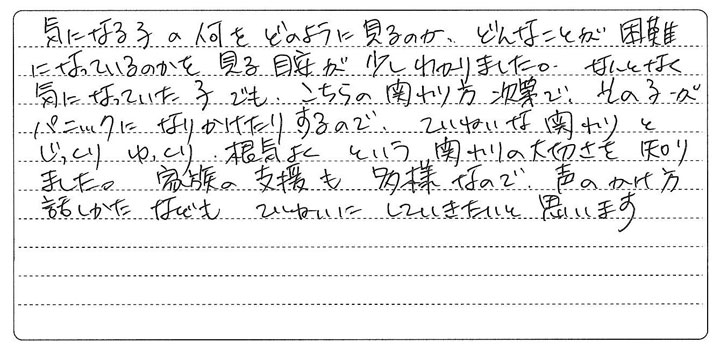 気になる子の何をどのように見るのか、どんなことが困難
になっているのかを見る目安が少しわかりました。なんとなく
気になっていた子でも、こちらの関わり方次第で、その子が
パニックになりかけたりするので、ていねいな関わりと
じっくりゆっくり、根気よくという関わりの大切さを知り
ました。家族の支援も多様なので、声のかけ方
話しかたなどもていねいにしていきたいと思います